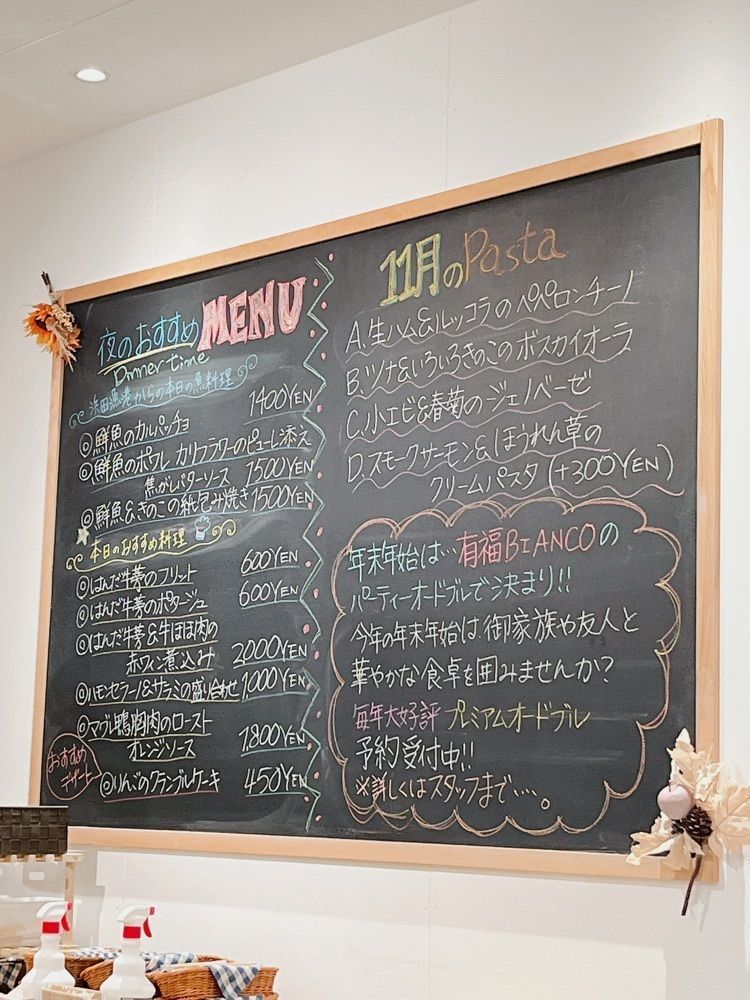 夜のおすすめMENU
Dinner time
浜田漁港からの本日の魚料理
◎鮮魚のカルパッチョ 1400YEN
◎鮮魚のポワレ カリフラワーのピューレ添え
焦がしバターソース 1500YEN
◎鮮魚&きのこの紙包み焼き 1500YEN
本日のおすすめ料理
◎はんだ牛蒡のフリット 600YEN
◎はんだ牛蒡のポタージュ 600YEN
◎はんだ牛蒡&牛ほほ肉の
赤ワイン煮込み 2000YEN
◎ハモンセラーノ&サラミの盛り合わせ 1,000YEN
◎マグレ鴨胸肉のロースト
オレンジソース 1,800YEN
おすすめ
デザート
◎りんごのクランブルケーキ 450YEN
11月のPasta
A.生ハム&ルッコラのペペロンチーノ
B.ツナ&いろいろきのこのボスカイオーラ
C.小エビ&春菊のジェノベーゼ
D.スモークサーモン&ほうれん草の
クリームパスタ(+300YEN)
年末年始は…有福BIANCOの
パーティーオードブルで決まり!!
今年の年末年始は、御家族や友人と
華やかな食卓を囲みませんか?
毎年大好評 プレミアムオードブル
予約受付中!!
※詳しくはスタッフまで…。